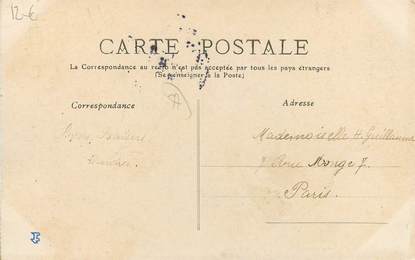 12-€
CARTE POSTALE
La Correspondance au recto n'est pas acceptée par tous les pays étrangers
(Se renseigner à la Poste)
Correspondance
Adresse
Mademoiselle H. Guillaume
7 Rue Monge 7.
Paris.